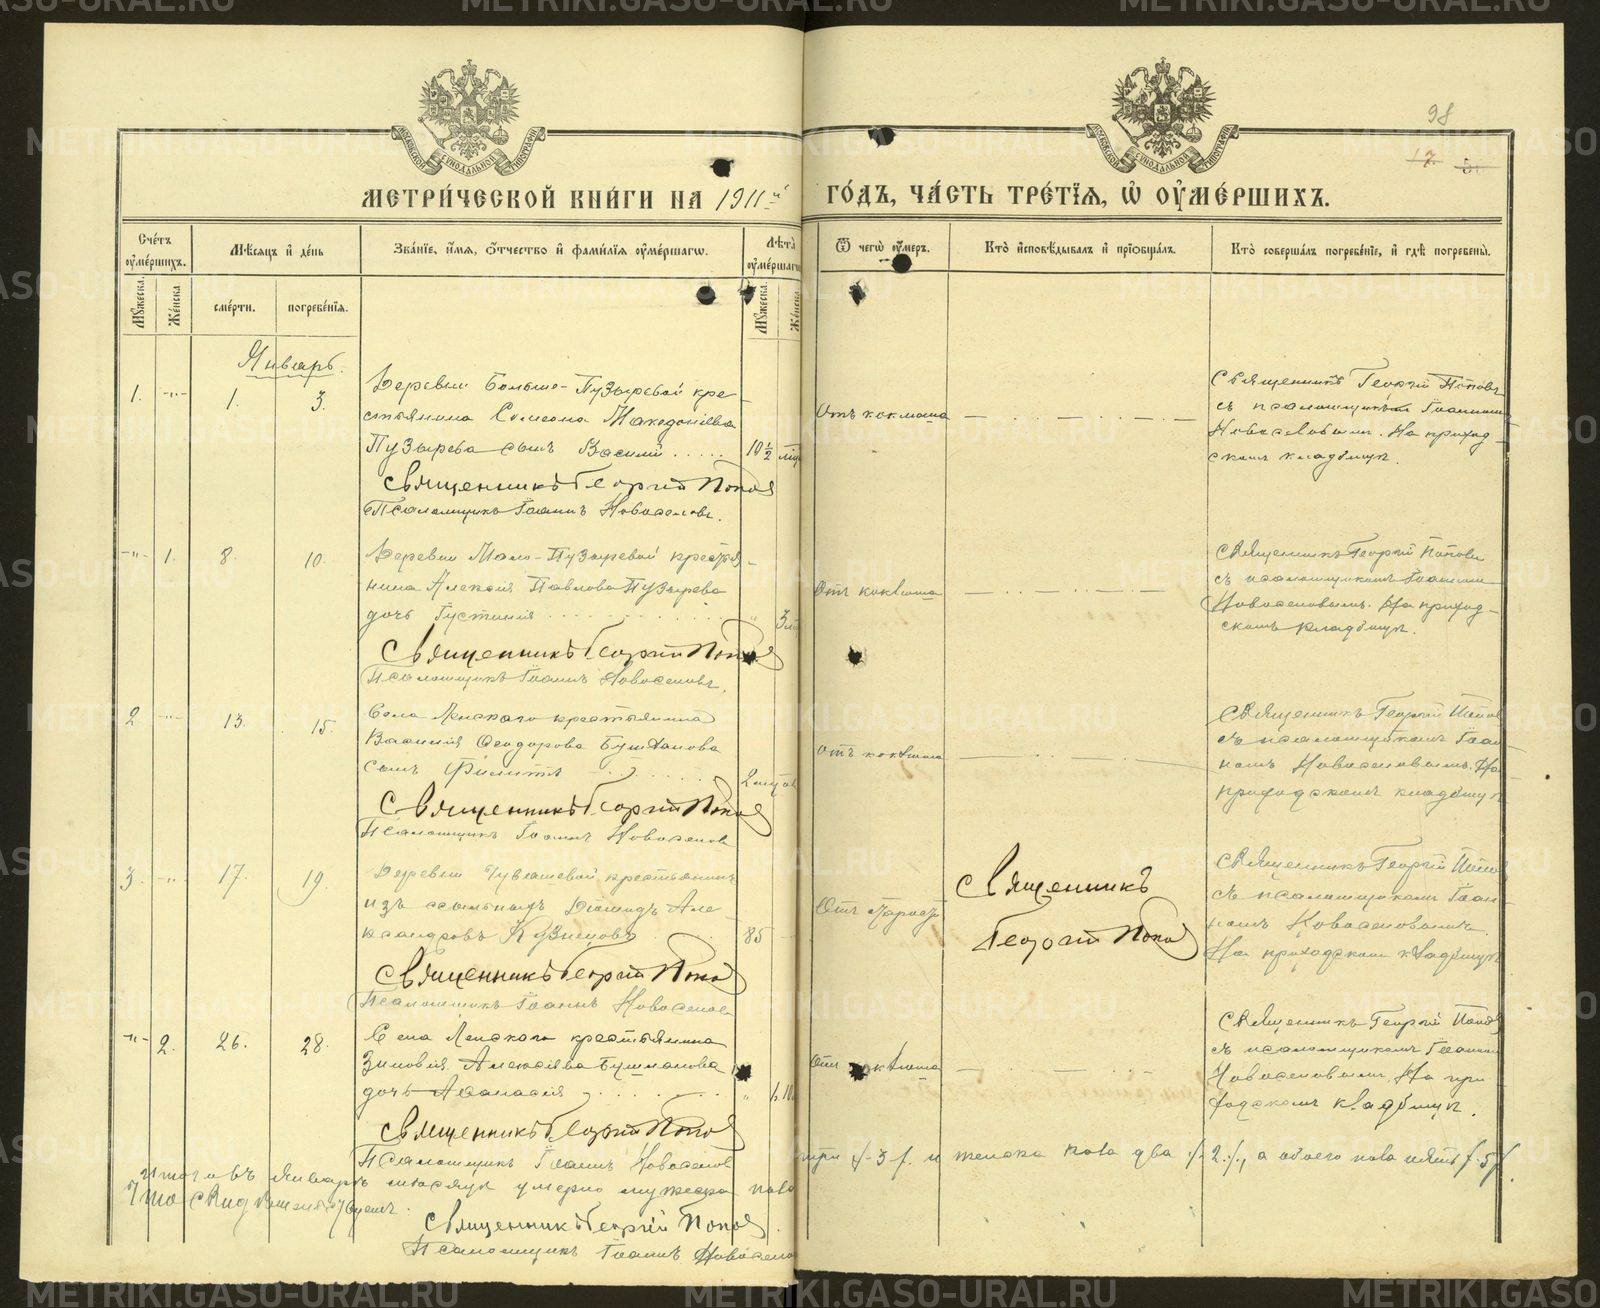 98
17.
МОСКОВСКОЙ СУНОДАЛЬНОЙ ТИПОГРАФІИ
МОСКОВСКОЙ СУНОДАЛЬНОЙ ТИПОГРАФІИ
МЕТРИ́ЧЕСКОЙ КНИ́ГИ НА 1911й ГО́ДЪ, ЧА́СТЬ ТРЕ́ТІЯ, Ѡ҆ ОУ҆МЕ́РШИХЪ.
Сче́тъ оу҆ме́ршихъ.
Мѣ́сяцъ и҆ де́нь
Зва́нїе, и҆́мя, ѻ҆́тчество и҆ фами́лїя оу҆ме́ршагѡ.
Лѣ́та оу҆ме́ршагѡ
Ѿ чегѡ̀ оу҆́меръ.
Кто̀ и҆сповѣ́дывалъ и҆ прїѡбща́лъ.
Кто̀ соверша́лъ погребе́нїе, и҆ гдѣ̀ погребены̀.
Мꙋ́жеска.
Же́нска
сме́рти.
погребе́нїя.
Мꙋ́жеска.
Же́нска
Январь.
1. -"- 1. 3.
Деревни Больше-Пузыревой кре-
стьянина Симеона Македонiева
Пузырева сынъ Василiй . . . . . 10 1/2
Священникъ Георгiй Попов
Псаломщикъ Iоаннъ Новоселовъ.
Отъ коклюша
Священникъ Георгiй Поповъ
съ псаломщикомъ Iоанном
Новоселовымъ. На приход-
скомъ кладбищѣ.
-"- 1. 8. 10.
Деревни Мало-Пузыревой крестья-
нина Алексiя Павлова Пузырева
дочь Iустинiя . . . . . " 3
Священникъ Георгiй Попов
Псаломщикъ Iоаннъ Новоселовъ.
Отъ коклюша
Священникъ Георгiй Поповъ
съ псаломщикомъ Iоанном
Новоселовымъ. На приход-
скомъ кладбищѣ.
2 -"- 13. 15.
Села Ленскаго крестьянина
Василiя Ѳеодорова Бушланова
сынъ Филиппъ . . . . . 2
Священникъ Георгiй Попов
Псаломщикъ Iоаннъ Новоселов
Отъ коклюша
Священникъ Георгiй Попов
съ псаломщикомъ Iоан
номъ Новоселовымъ. На
приходскомъ кладбищѣ
3. -"- 17. 19.
Деревни Чувашевой крестьянинъ
изъ ссыльныхъ Дiомидъ Але-
ксандровъ Кузнецовъ . . . 85
Священникъ Георгiй Попов
Псаломщикъ Iоаннъ Новоселов
Отъ старости
Священникъ
Георгiй Попов
Священникъ Георгiй Попов
съ псаломщикомъ Iоан-
номъ Новоселовымъ.
На приходскомъ кладбищѣ
-"- 2. 26. 28.
Села Ленскаго крестьянина
Зиновiя Алексiева Бушланова
дочь Аѳанасiя . . . . . "
Священникъ Георгiй Попов
Псаломщикъ Iоаннъ Новоселов
Отъ коклюша
Священникъ Георгiй Попов
съ псаломщикомъ Iоанном
Новоселовымъ. На при-
ходскомъ кладбищѣ.
Итого въ январѣ мѣсяцѣ умерло мужеска пола три /-3/. и женска пола два /-2/., а обоего пола пять /-5/.
Что свидѣтельствуемъ.
Священникъ Георгiй Попов
Псаломщикъ Iоаннъ Новоселов
METRIKI.GASO-URAL.RU